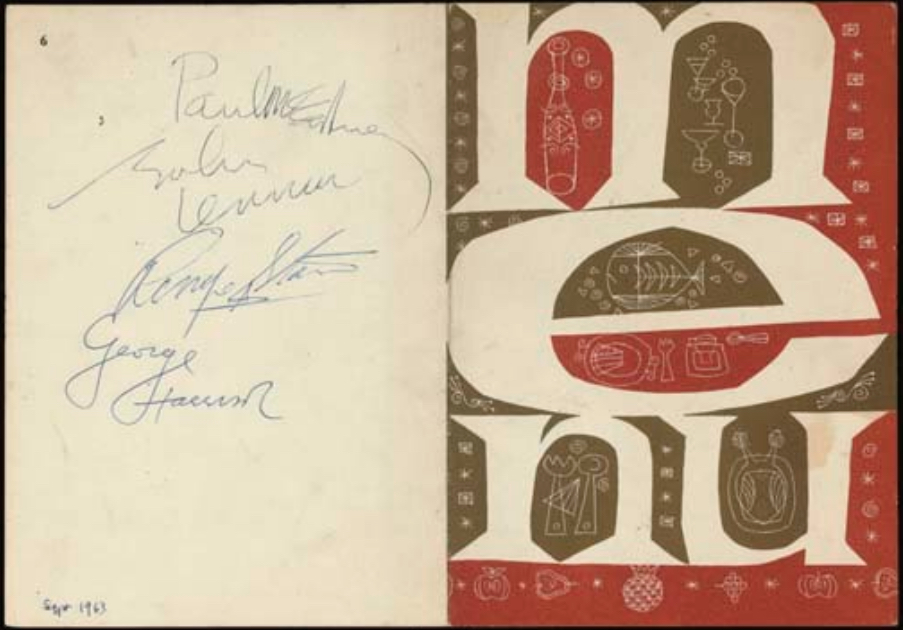 6
Paul McCartney
John
Lennon
Ringo Starr
George
Harrison
Sept 1963
menu